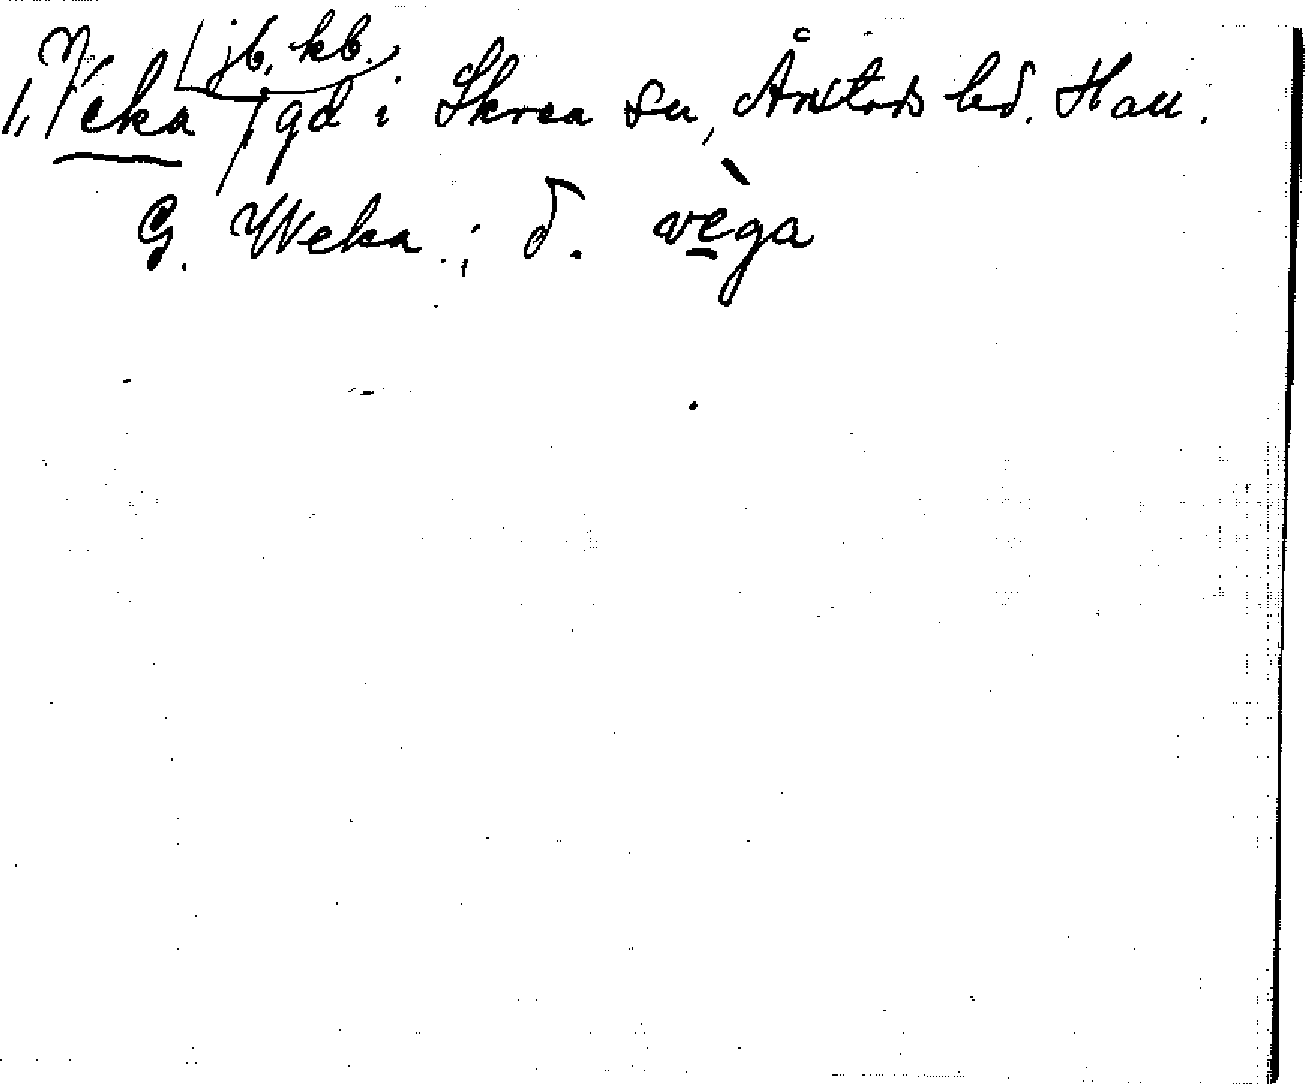 Veka jb, kb. gd i Skrea sn, Årstads hd. Hall.
G. Weka.; d. vèga